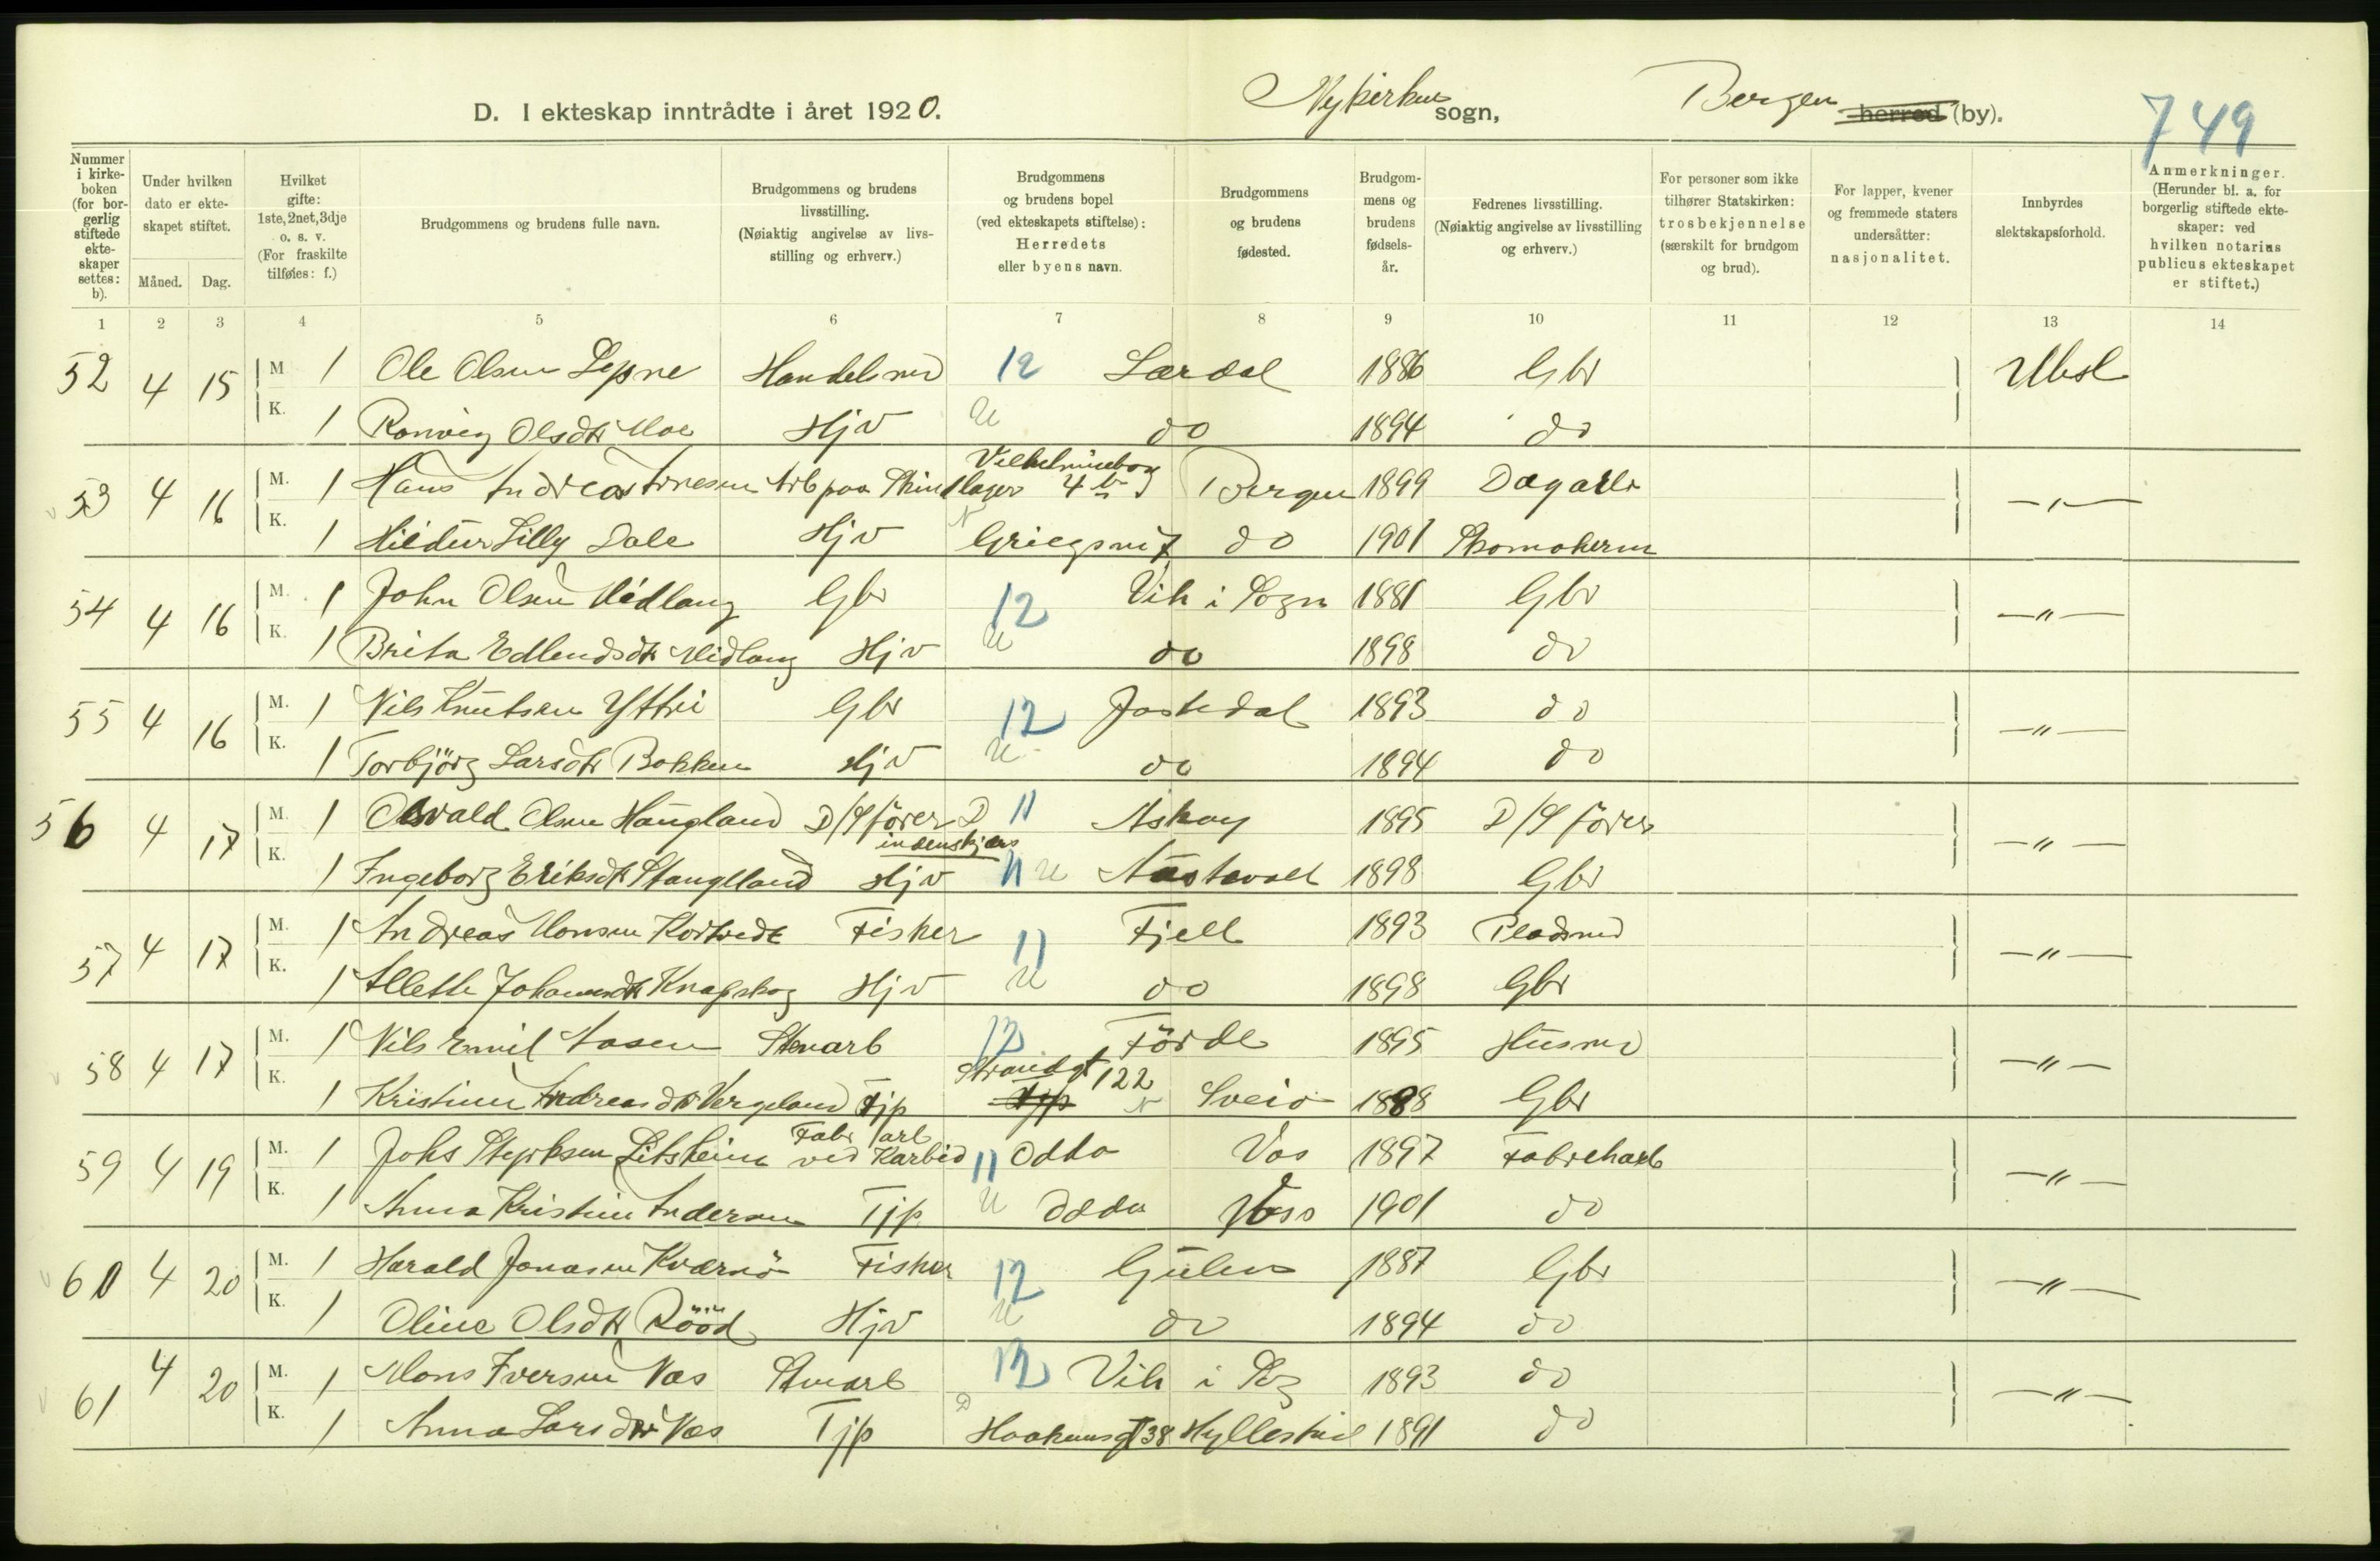 D. I ekteskap inntrådte i året 1920. Nykirkens sogn, Bergen herred (by). 749
Nummer i kirkeboken (for borgerlig stiftede ekteskaper settes: b).
Under hvilken dato er ekteskapet stiftet.
Måned. Dag.
Hvilket gifte: 1ste, 2net, 3dje o. s. v. (For fraskilte tilføies: f.)
Brudgommens og brudens fulle navn.
Brudgommens og brudens livsstilling. (Nøiaktig angivelse av livsstilling og erhverv.)
Brudgommens og brudens bopel (ved ekteskapets stiftelse): Herredets eller byens navn.
Brudgommens og brudens fødested.
Brudgommens og brudens fødselsår.
Fedrenes livsstilling. (Nøiaktig angivelse av livsstilling og erhverv.)
For personer som ikke tilhører Statskirken: trosbekjennelse (særskilt for brudgom og brud).
For lapper, kvener og fremmede staters undersåtter: nasjonalitet.
Innbyrdes slektskapsforhold.
Anmerkninger. (Herunder bl. a. for borgerlig stiftede ekteskaper: ved hvilken notarius publicus ekteskapet er stiftet.)
1 2 3 4 5 6 7 8 9 10 11 12 13 14
52 4 15 M 1 Ole Olsen Handelsmd 12 Lærdal 1886 Gbr Ubsl
K. 1 Olsdtr Moe Hjv U do 1894 do
53 4 16 M. 1 Hans Andreas Arnesen Arb paa 4 b Bergen 1899 Dagarb -"-
K. 1 Hildur Lilly Dale Hjv do 1901 Skomakerm
54 4 16 M. 1 John Olsen Midlang Gbr 12 Vik i Sogn 1881 Gbr -"-
K. 1 Brita Edlendsdtr Midlang Hjv U do 1898 do
55 4 16 M. 1 Nils Knutsen Yttri Gbr 12 Jostedal 1893 do -"-
K. 1 Torbjörg Larsdtr Bakken Hjv U do 1894 do
56 4 17 M. 1 Osvald Olsen Haugland D/S förer D 11 Askøy 1895 D/S förer -"-
indenskjærs
K. 1 Ingeborg Eriksdtr Hjv 11 U Austevoll 1898 Gbr
57 4 17 M. 1 Andreas Monsen Fisker 11 Fjell 1893 Pladsmd -"-
K. 1 Johannesdtr Knapskog Hjv U do 1898 Gbr
58 4 17 M. 1 Nils Emil Aasen Stenarb 12 Förde 1895 Husmd -"-
Strandgt 122
K. 1 Kristine Andreasdtr Tjp Tjp N Sveio 1888 Gbr
Fabr arb
59 4 19 M. 1 Johs Styrksen Litsheim ved Karbid 11 Odda Vos 1897 Fabrekarb -"-
K. 1 Anna Kristine Andersen Tjp U Odda Voss 1901 do
60 4 20 M. 1 Harald Jonasen Kværnö Fisker 12 Gulen 1887 Gbr -"-
K. 1 Oline Olsdtr Rööd Hjv U do 1894 do
61 4 20 M. 1 Mons Iversen Næs Stenarb 12 Vik i Sog 1893 do -"-
K. 1 Anna Larsdtr Næs Tjp D Haakonsgt 38 Hyllestad 1891 do